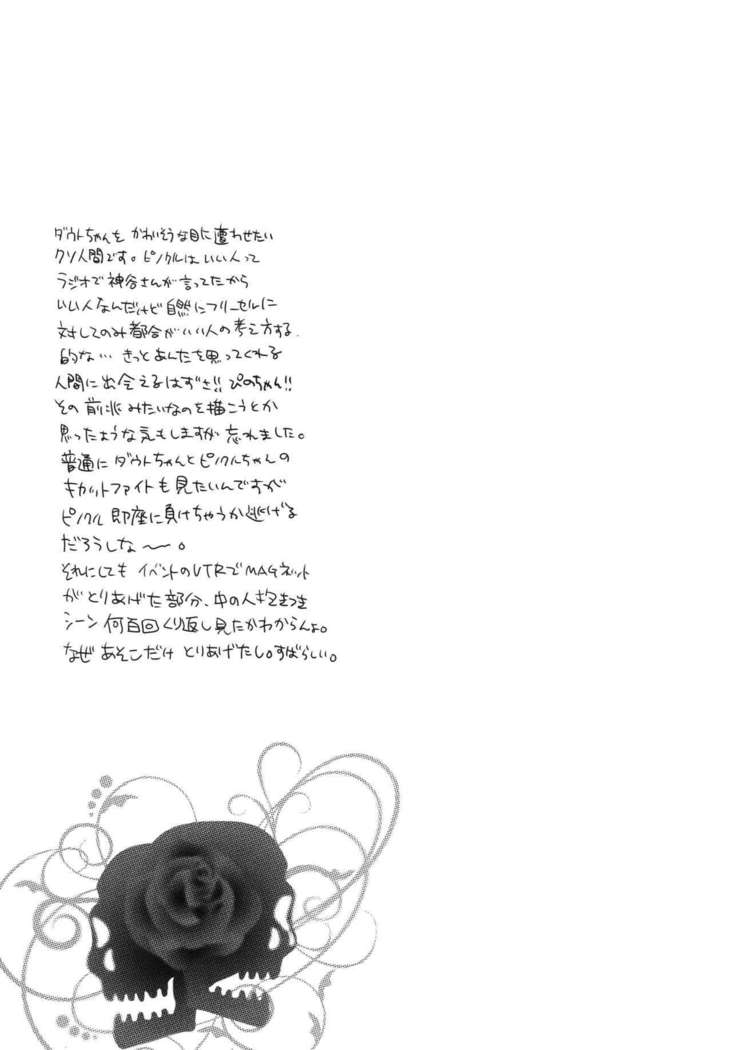 ダウトちゃんを かわいそうな目に遭わせたい
クソ人間です。ピノクルは いい人って
ラジオで 神谷さんが 言ってたから
いい人なんだけど 自然にフリーセルに
対してのみ 都合がいい人の考え方する
的な… きっと あんたを思ってくれる
人間に 出会えるはずさ!! ぴのちゃん!!
その 前兆 みたいなのを 描こうとか
思ったような気もしますが 忘れました。
普通に ダウトちゃんと ピノクルちゃんの
キャットファイトも 見たいんですが
ピノクル 即座に負けちゃうか 逃げる
だろうしな〜。
それにしても イベントのVTRで MAGネット
が とりあげた 部分、中の人
シーン 何百回 くり返し 見たか わからんよ。
なぜ あそこだけ とりあげたし。すばらしい。